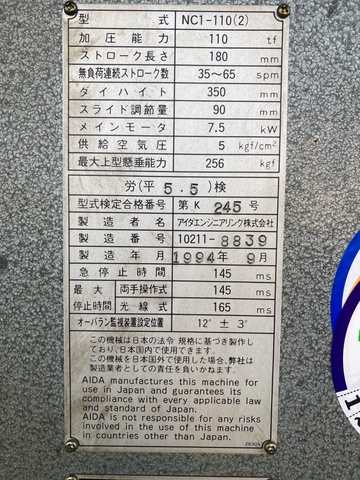 型式 NC1-110(2)
加圧能力 110 tf
ストローク長さ 180 mm
無負荷連続ストローク数 35～65 spm
ダイハイト 350 mm
スライド調節量 90 mm
メインモータ 7.5 kW
供給空気圧 5 kgf/cm²
最大上型懸垂能力 256 kgf
労(平 5.5)検
型式検定合格番号 第K 245号
製造者 アイダエンジニアリング株式会社
製造番号 10211-8839
製造年月 1994年 9月
急停止時間 145 ms
最大停止時間 両手操作式 145 ms
光線式 165 ms
オーバラン監視装置設定位置 12° ± 3°
この機械は日本の法令 規格に基づき製作し
ており、日本国内で使用できます。
この機械を日本国外で使用した場合、弊社は
製造業者としての責任を負いかねます。
AIDA manufactures this machine for
use in Japan and guarantees its
compliance with every applicable law
and standard of Japan.
AIDA is not responsible for any risks
involved in the use of this machine
in countries other than Japan.